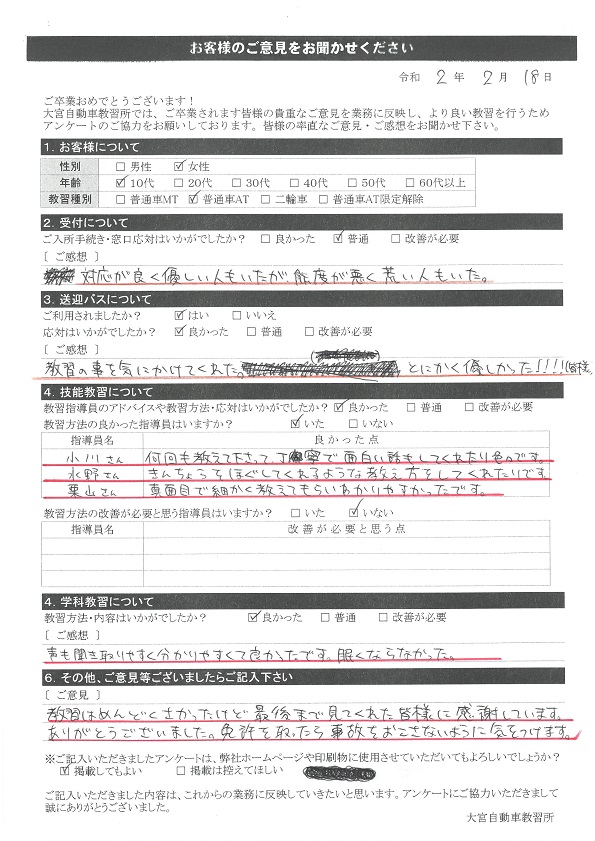 お客様のご意見をお聞かせください
令和 2 年 2 月 18 日
ご卒業おめでとうございます！
大宮自動車教習所では、ご卒業されます皆様の貴重なご意見を業務に反映し、より良い教習を行うため
アンケートのご協力をお願いしております。皆様の率直なご意見・ご感想をお聞かせ下さい。
1. お客様について
性別 □ 男性 ☑ 女性
年齢 ☑ 10代 □ 20代 □ 30代 □ 40代 □ 50代 □ 60代以上
教習種別 □ 普通車MT ☑ 普通車AT □ 二輪車 □ 普通車AT限定解除
2. 受付について
ご入所手続き・窓口応対はいかがでしたか？ □ 良かった ☑ 普通 □ 改善が必要
[ ご感想 ]
対応が良く優しい人もいたが、態度が悪く荒い人もいた。
3. 送迎バスについて
ご利用されましたか？ ☑ はい □ いいえ
応対はいかがでしたか？ ☑ 良かった □ 普通 □ 改善が必要
[ ご感想 ]
教習の事を気にかけてくれた。とにかく優しかった!!!!(皆様
4. 技能教習について
教習指導員のアドバイスや教習方法・応対はいかがでしたか？ ☑ 良かった □ 普通 □ 改善が必要
教習方法の良かった指導員はいますか？ ☑ いた □ いない
指導員名 良かった点
小川さん 何回も教えて下さって、丁寧で面白い話もしてくれたりetc.です。
水野さん きんちょうをほぐしてくれるような教え方をしてくれたりです。
栗山さん 真面目で細かく教えてもらいわかりやすかったです。
教習方法の改善が必要と思う指導員はいますか？ □ いた ☑ いない
指導員名 改善が必要と思う点
4. 学科教習について
教習方法・内容はいかがでしたか？ ☑ 良かった □ 普通 □ 改善が必要
[ ご感想 ]
声も聞き取りやすく分かりやすくて良かったです。眠くならなかった。
6. その他、ご意見等ございましたらご記入下さい
[ ご意見 ]
教習はめんどくさかったけど最後まで見てくれた皆様に感謝しています。
ありがとうございました。免許を取ったら事故をおこさないように気をつけます。
※ご記入いただきましたアンケートは、弊社ホームページや印刷物に使用させていただいてもよろしいでしょうか？
☑ 掲載してもよい □ 掲載は控えてほしい
ご記入いただきました内容は、これからの業務に反映していきたいと思います。アンケートにご協力いただきまして
誠にありがとうございました。
大宮自動車教習所